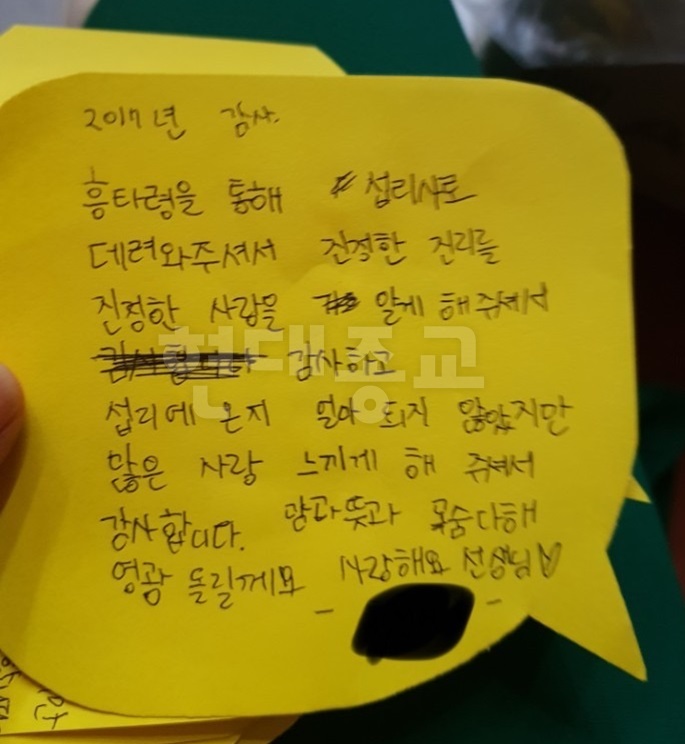 2017년 감사.
흥타령을 통해 섭리사로
데려와주셔서 진정한 진리를
진정한 사랑을 알게 해주셔서
현대종교
감사하고
섭리에 온지 얼마 되지 않았지만
많은 사랑 느끼게 해 주셔서
감사합니다. 맘과뜻과 목숨다해
영광 돌릴께요 사랑해요 선생님♡